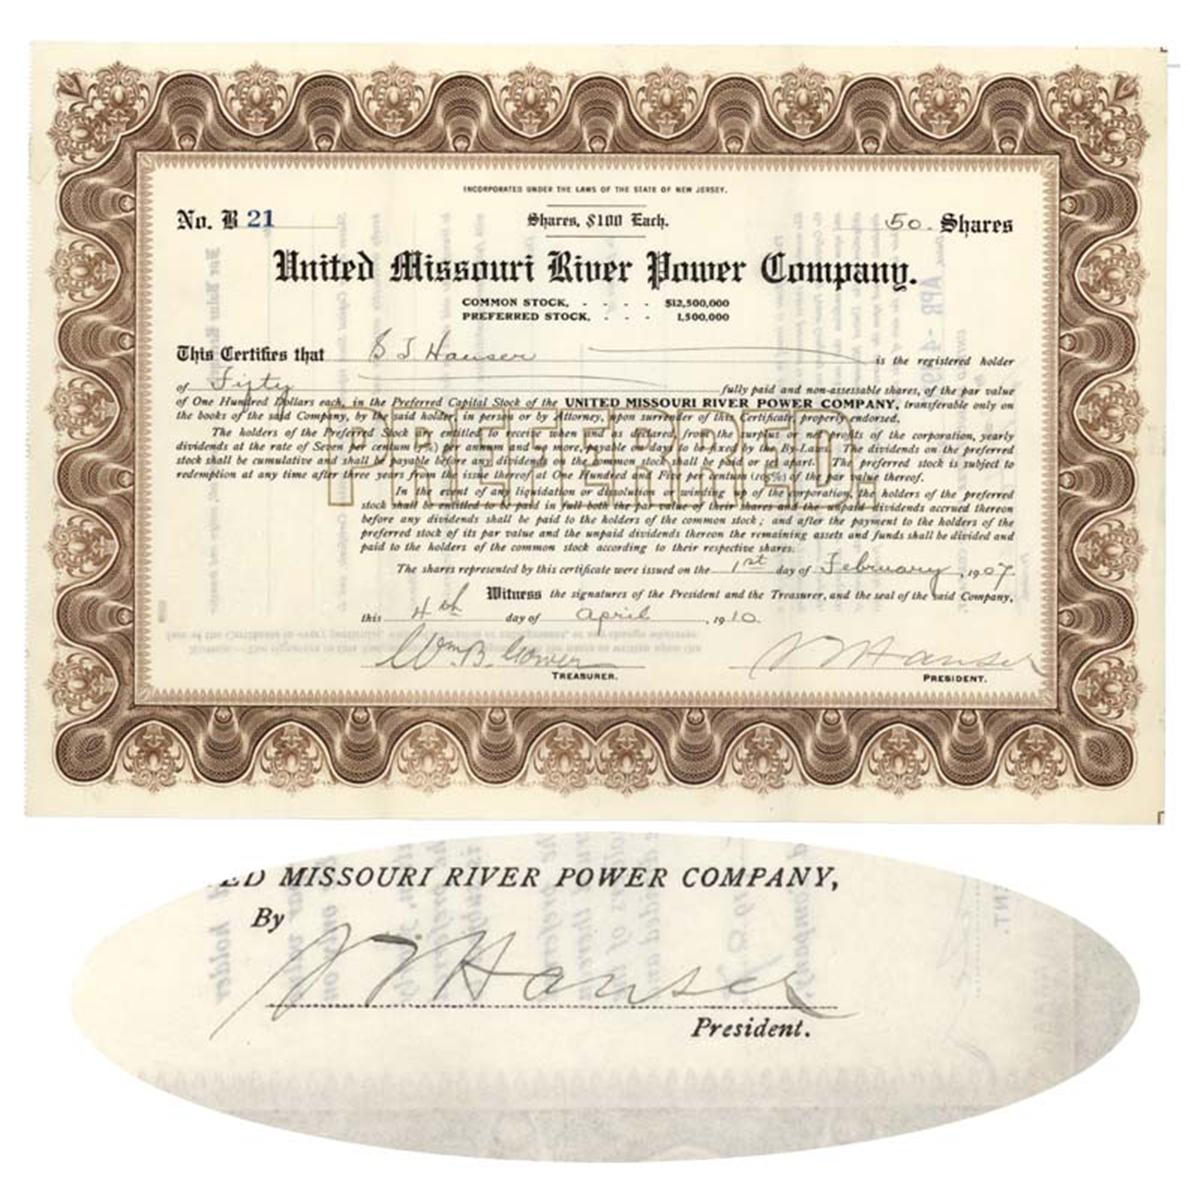 INCORPORATED UNDER THE LAWS OF THE STATE OF NEW JERSEY.
No. B 21
Shares, $100 Each.
50 Shares
United Missouri River Power Company.
COMMON STOCK, - - - - $12,500,000
PREFERRED STOCK, - - - 1,500,000
This Certifies that S T Hauser is the registered holder
of Fifty fully paid and non-assessable shares, of the par value
of One Hundred Dollars each, in the Preferred Capital Stock of the UNITED MISSOURI RIVER POWER COMPANY, transferable only on
the books of the said Company, by the said holder, in person or by Attorney, upon surrender of this Certificate, properly endorsed.
The holders of the Preferred Stock are entitled to receive when and as declared, from the surplus or net profits of the corporation, yearly
dividends at the rate of Seven per centum (7%) per annum and no more, payable on days to be fixed by the By-Laws. The dividends on the preferred
stock shall be cumulative and shall be payable before any dividends on the common stock shall be paid or set apart. The preferred stock is subject to
redemption at any time after three years from the issue thereof at One Hundred and Five per centum (105%) of the par value thereof.
PREFERRED.
In the event of any liquidation or dissolution or winding up of the corporation, the holders of the preferred
stock shall be entitled to be paid in full both the par value of their shares and the unpaid dividends accrued thereon
before any dividends shall be paid to the holders of the common stock; and after the payment to the holders of the
preferred stock of its par value and the unpaid dividends thereon the remaining assets and funds shall be divided and
paid to the holders of the common stock according to their respective shares.
The shares represented by this certificate were issued on the 1st day of February, 1907.
Witness the signatures of the President and the Treasurer, and the seal of the said Company,
this 4th day of April, 1910.
Wm. B. Gower
TREASURER.
S T Hauser
PRESIDENT.
ED MISSOURI RIVER POWER COMPANY,
By
S T Hauser
President.